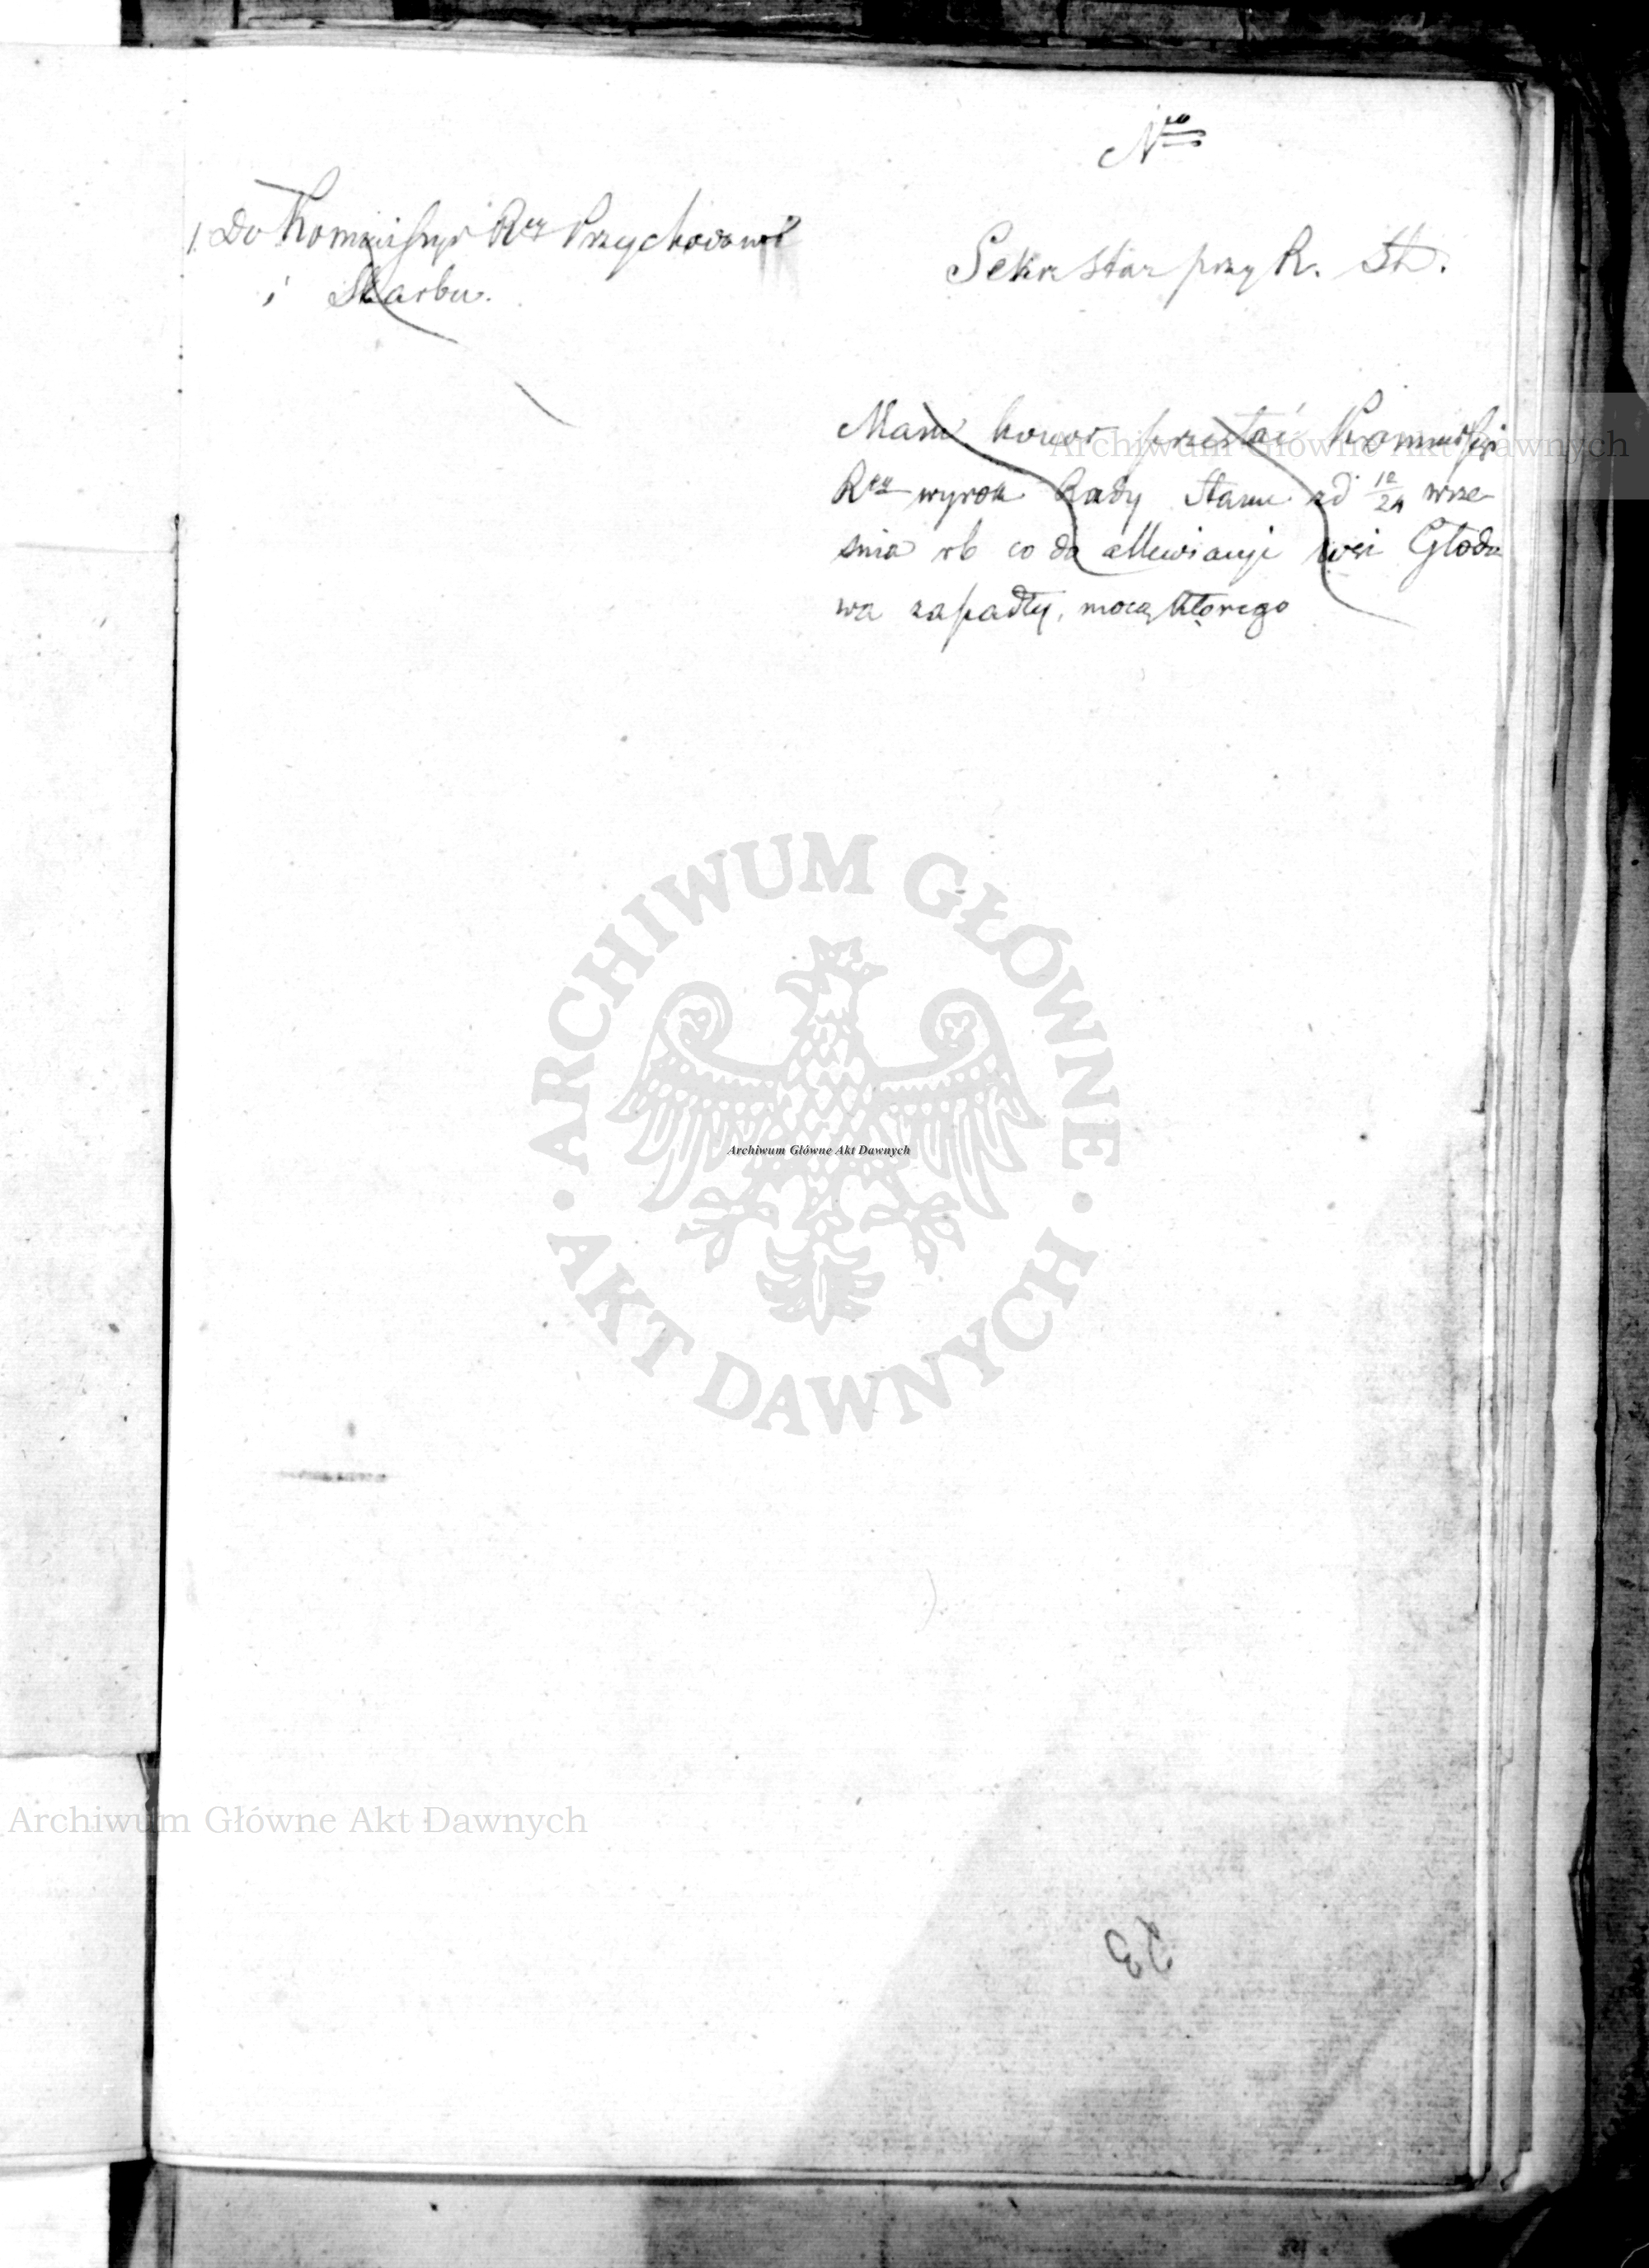 Nro
1. Do Kommissyi Rey Przychodów
i Skarbu.
Sekretarz przy R. St.
Mam honor przesłać Kommissyi
Rey wyrok Rady Stanu od 12/24 wrze-
śnia rb co do allewiacyi wsi Głodo
wa zapadły, mocą którego
ARCHIWUM GŁÓWNE
AKT DAWNYCH
Archiwum Główne Akt Dawnych
Archiwum Główne Akt Dawnych
Archiwum Główne Akt Dawnych